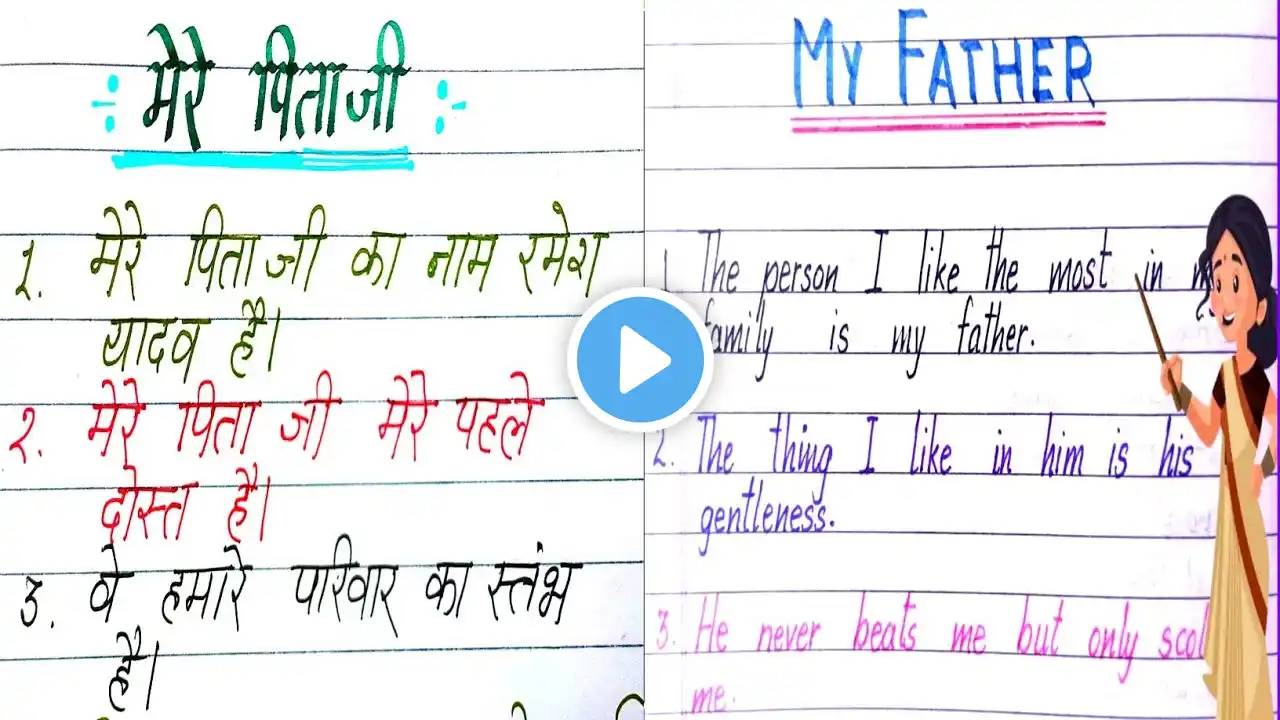 मेरे पिताजी
1. मेरे पिता जी का नाम रमेश
यादव है।
2. मेरे पिता जी मेरे पहले
दोस्त है।
3. वे हमारे परिवार का स्तंभ
है।
MY FATHER
1. The person I like the most in
family is my father.
2. The thing I like in him is his
gentleness.
3. He never beats me but only
me.